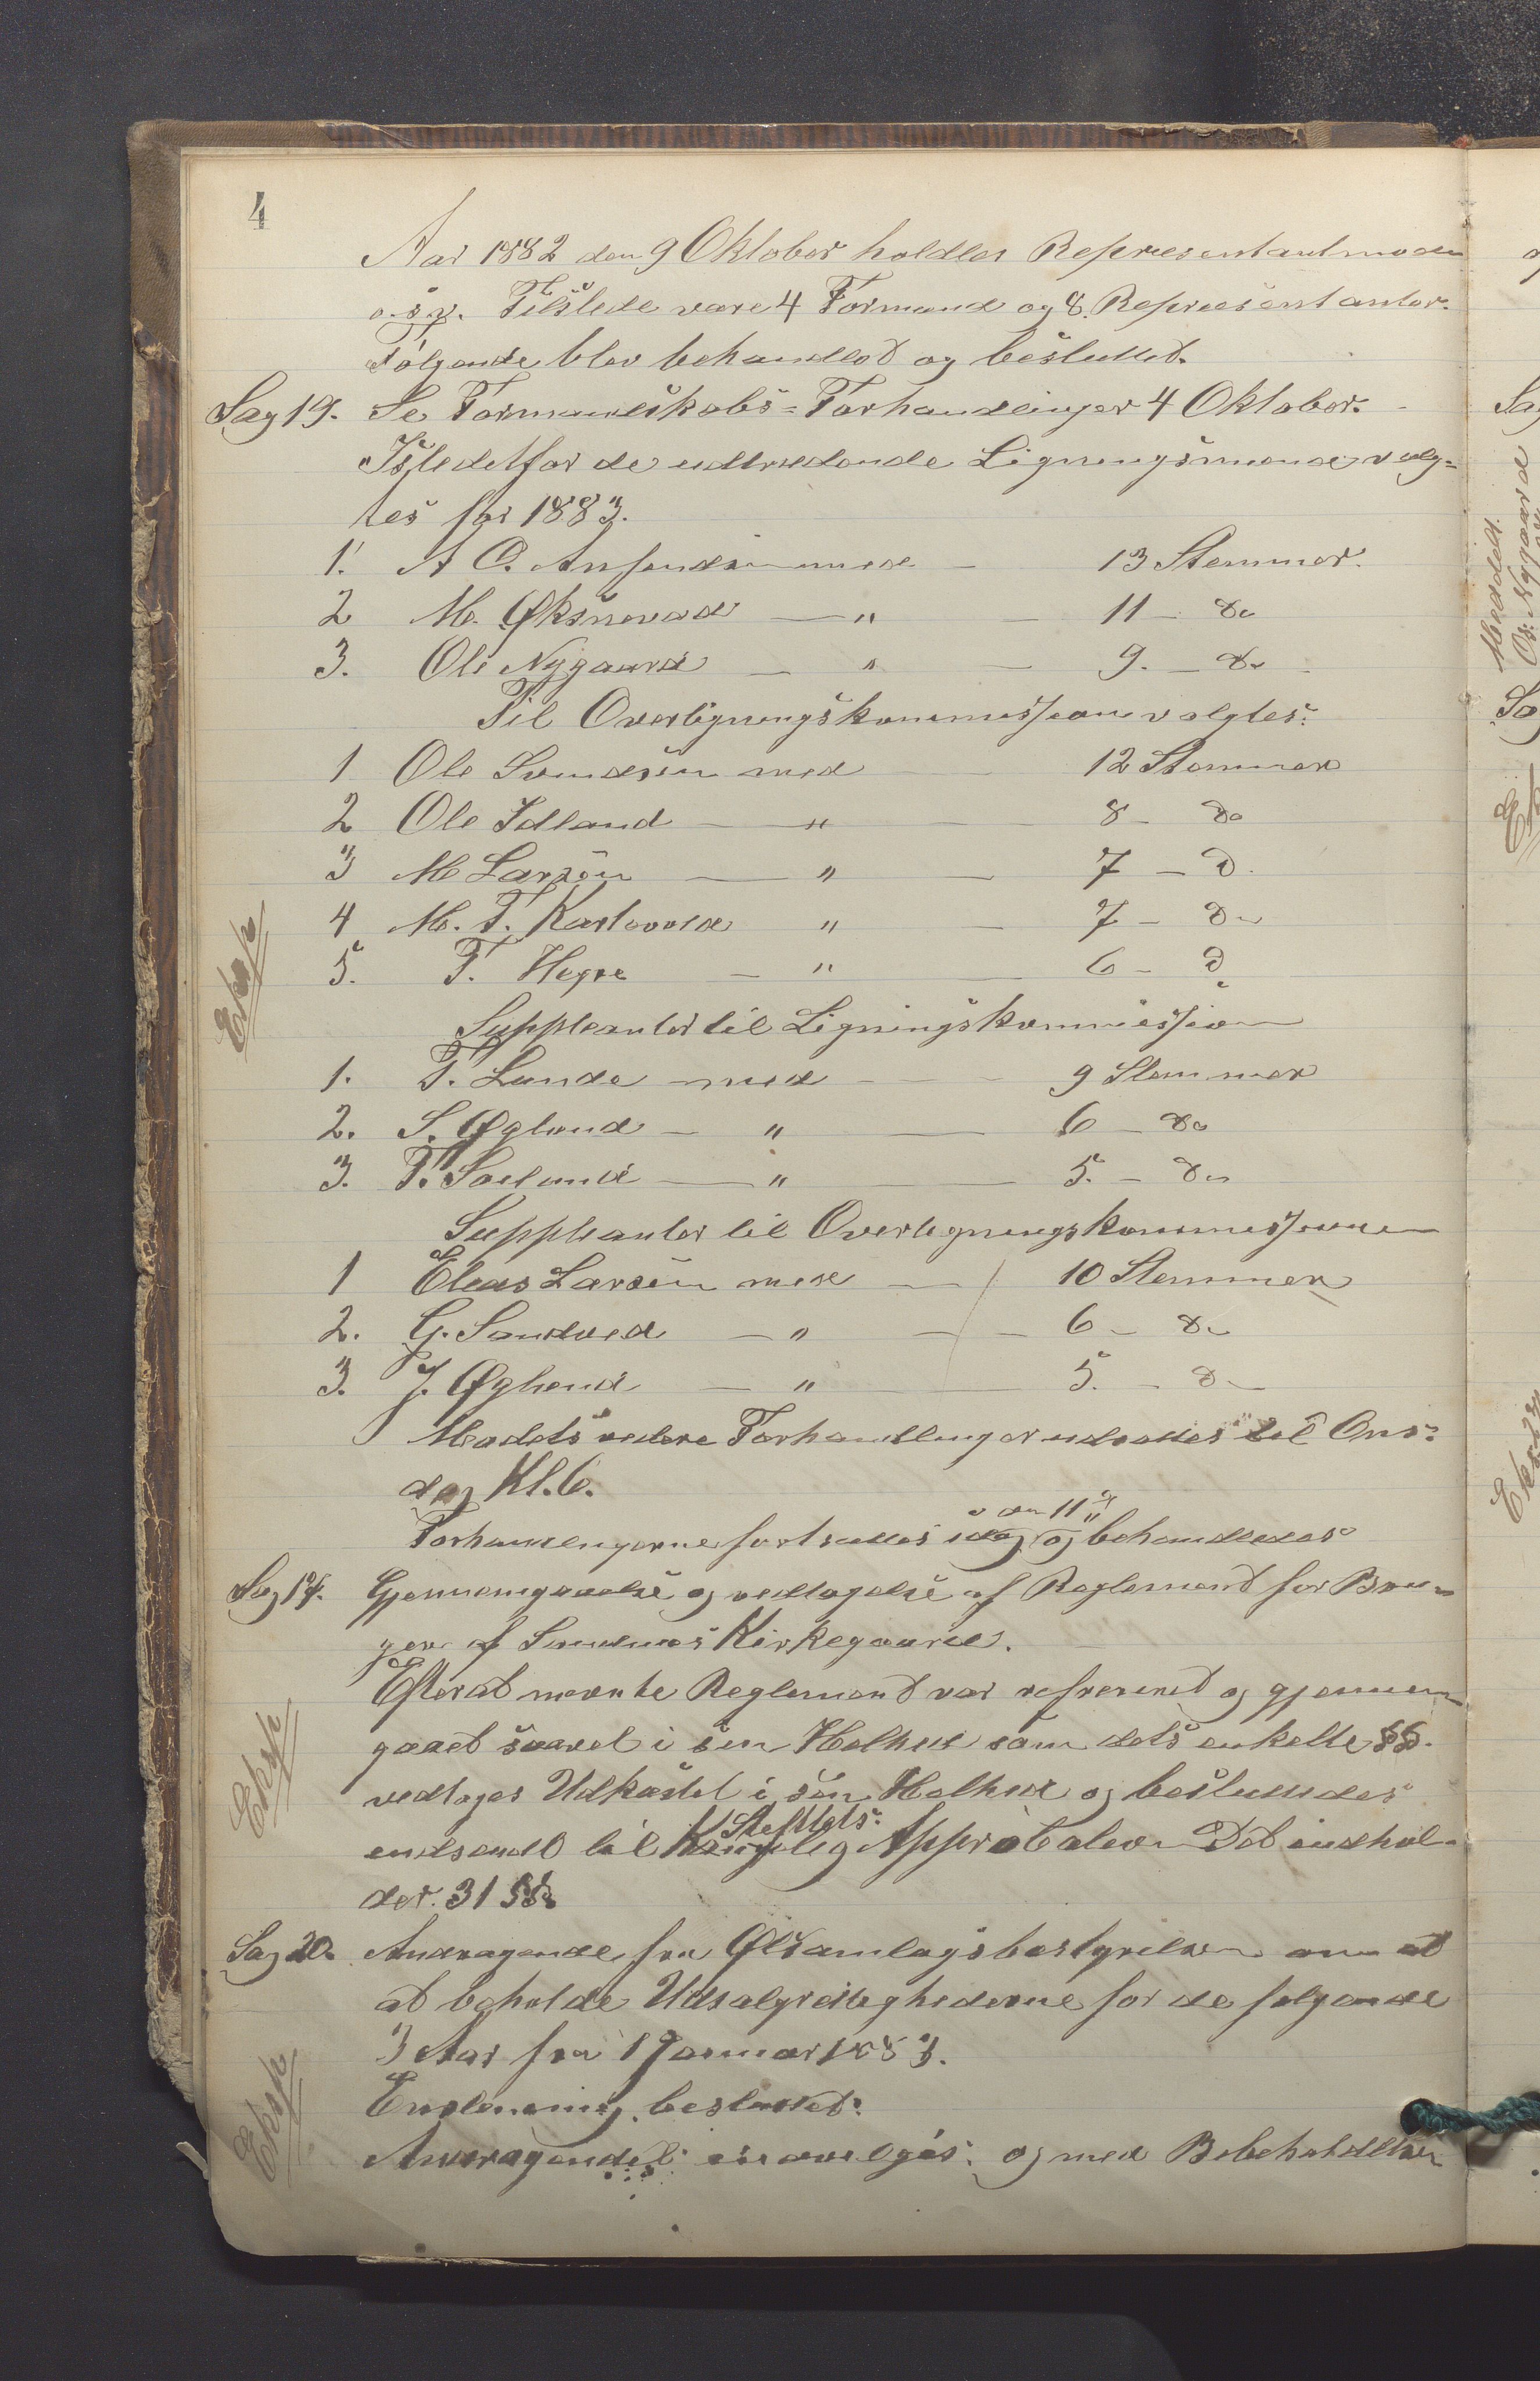 4
Aar 1882 den 9 Oktober holdtes Representantmøde
o.s.v. Tilstede vare 4 Formænd og 8. Repræsentanter.
Følgende blev behandlet og besluttet.
Sag 19. Se Formandskabs-Forhandlinger 4 Oktober.
Istedetfor de udtrædende Ligningsmænd valg-
tes for 1883.
1. A O. Anfendsen med - 13 Stemmer.
2 M. Øksnevad — " — 11 — do
3. Ole Nygaard — " — 9. — do
Til Overligningskommissionen valgtes:
1 Ole Svendsen med 12 Stemmer
2 Ole Idland — " — 8 — do
3 M Larsen — " — 7 — d.
4 M. T. Karlsvold " — 7 — do
5. T. Hegre — " — 6 — d.
Suppleanter til Ligningskommission
1. T. Lunde med — 9 Stemmer
2. S. Øgland — " — 6 — do
3. T. Soeland — " — 5. — do
Suppleanter til Overligningskommissionen
1 Elias Larsen med — 10 Stemmer
2. G. Sandved — " — 6 — do
3. J. Øglænd — " — 5. — d—
Mødets videre Forhandlinger udsattes til Ons-
dag Kl. 6.
den 11te
Forhandlingerne fortsattes idag og behandledes
Sag 17. Gjennemgaaelse og vedtagelse af Reglement for Bru-
gen af Sandnes Kirkegaard.
Efterat nævnte Reglement var refereret og gjennem-
gaaet saavel i sin Helhed som dets enkelte §§.
vedtoges Udkastet i sin Helhed og besluttedes
Stiftets
indsendt til Kongelig Approbation Det indhol-
der. 31 §§.
Sag 20. Andragende fra Ølsamlagsbestyrelsen om at
at beholde Udsalgsrettighederne for de følgende
3 Aar fra 1 Januar 1883.
Enstemmig besluttet:
Andragendet og med Bibeholdelsen
Eksp
Eksp
Eksp